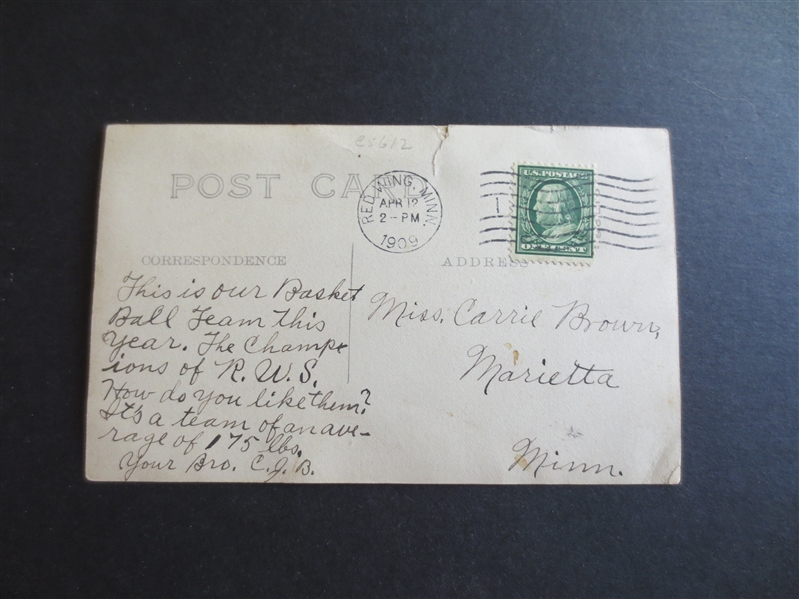 c5612
POST CARD
RED WING, MINN.
APR 12
2-PM
1909
1
U.S. POSTAGE
ONE CENT
CORRESPONDENCE
ADDRESS
This is our Basket
Ball Team this
year. The Champ-
ions of R. W. S.
How do you like them?
It's a team of an ave-
rage of 175 lbs.
Your Bro. C. J. B.
Miss. Carrie Brown,
Marietta
Minn.